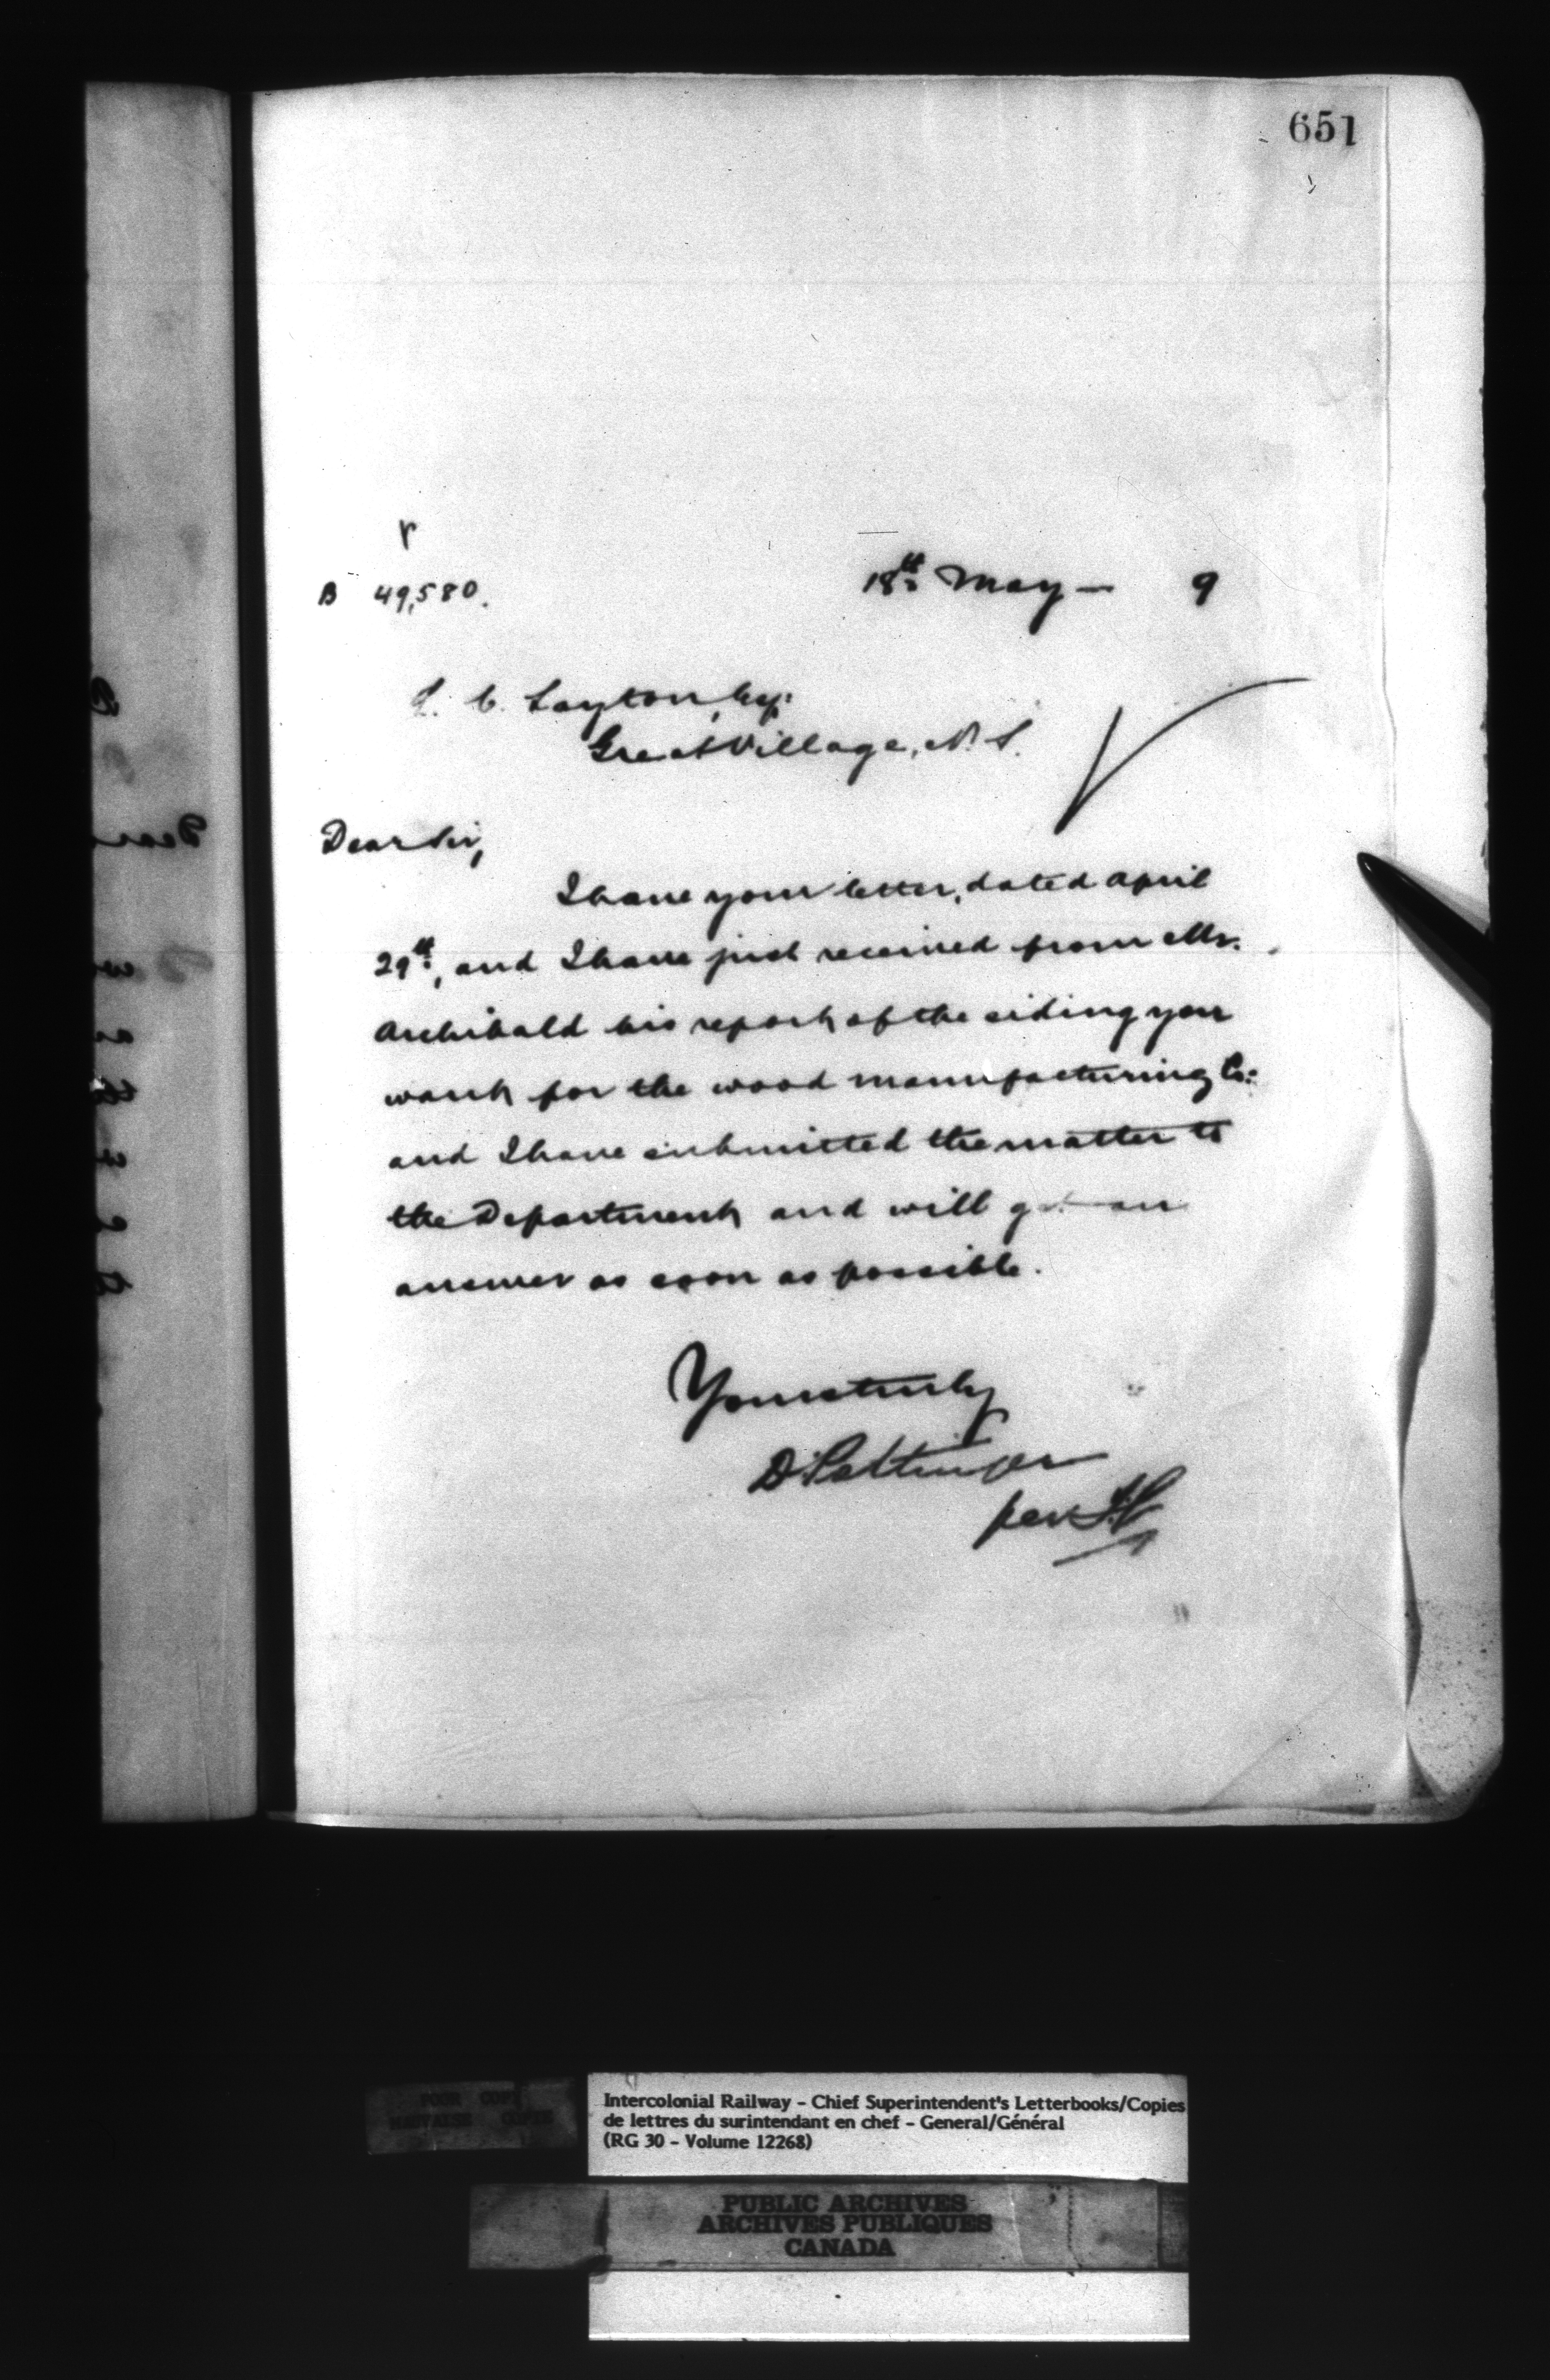 651
B 49,580.
18th May — 9
L. C. Layton, Esq:
Great Village, N. S.
Dear Sir,
I have your letter, dated April
29th, and I have just received from Mr.
Archibald his report of the siding you
want for the wood manufacturing Co:
and I have submitted the matter to
the Department and will get an
answer as soon as possible.
Yours truly
D Pottinger
per
Intercolonial Railway - Chief Superintendent's Letterbooks/Copies
de lettres du surintendant en chef - General/Général
(RG 30 - Volume 12268)
PUBLIC ARCHIVES
ARCHIVES PUBLIQUES
CANADA